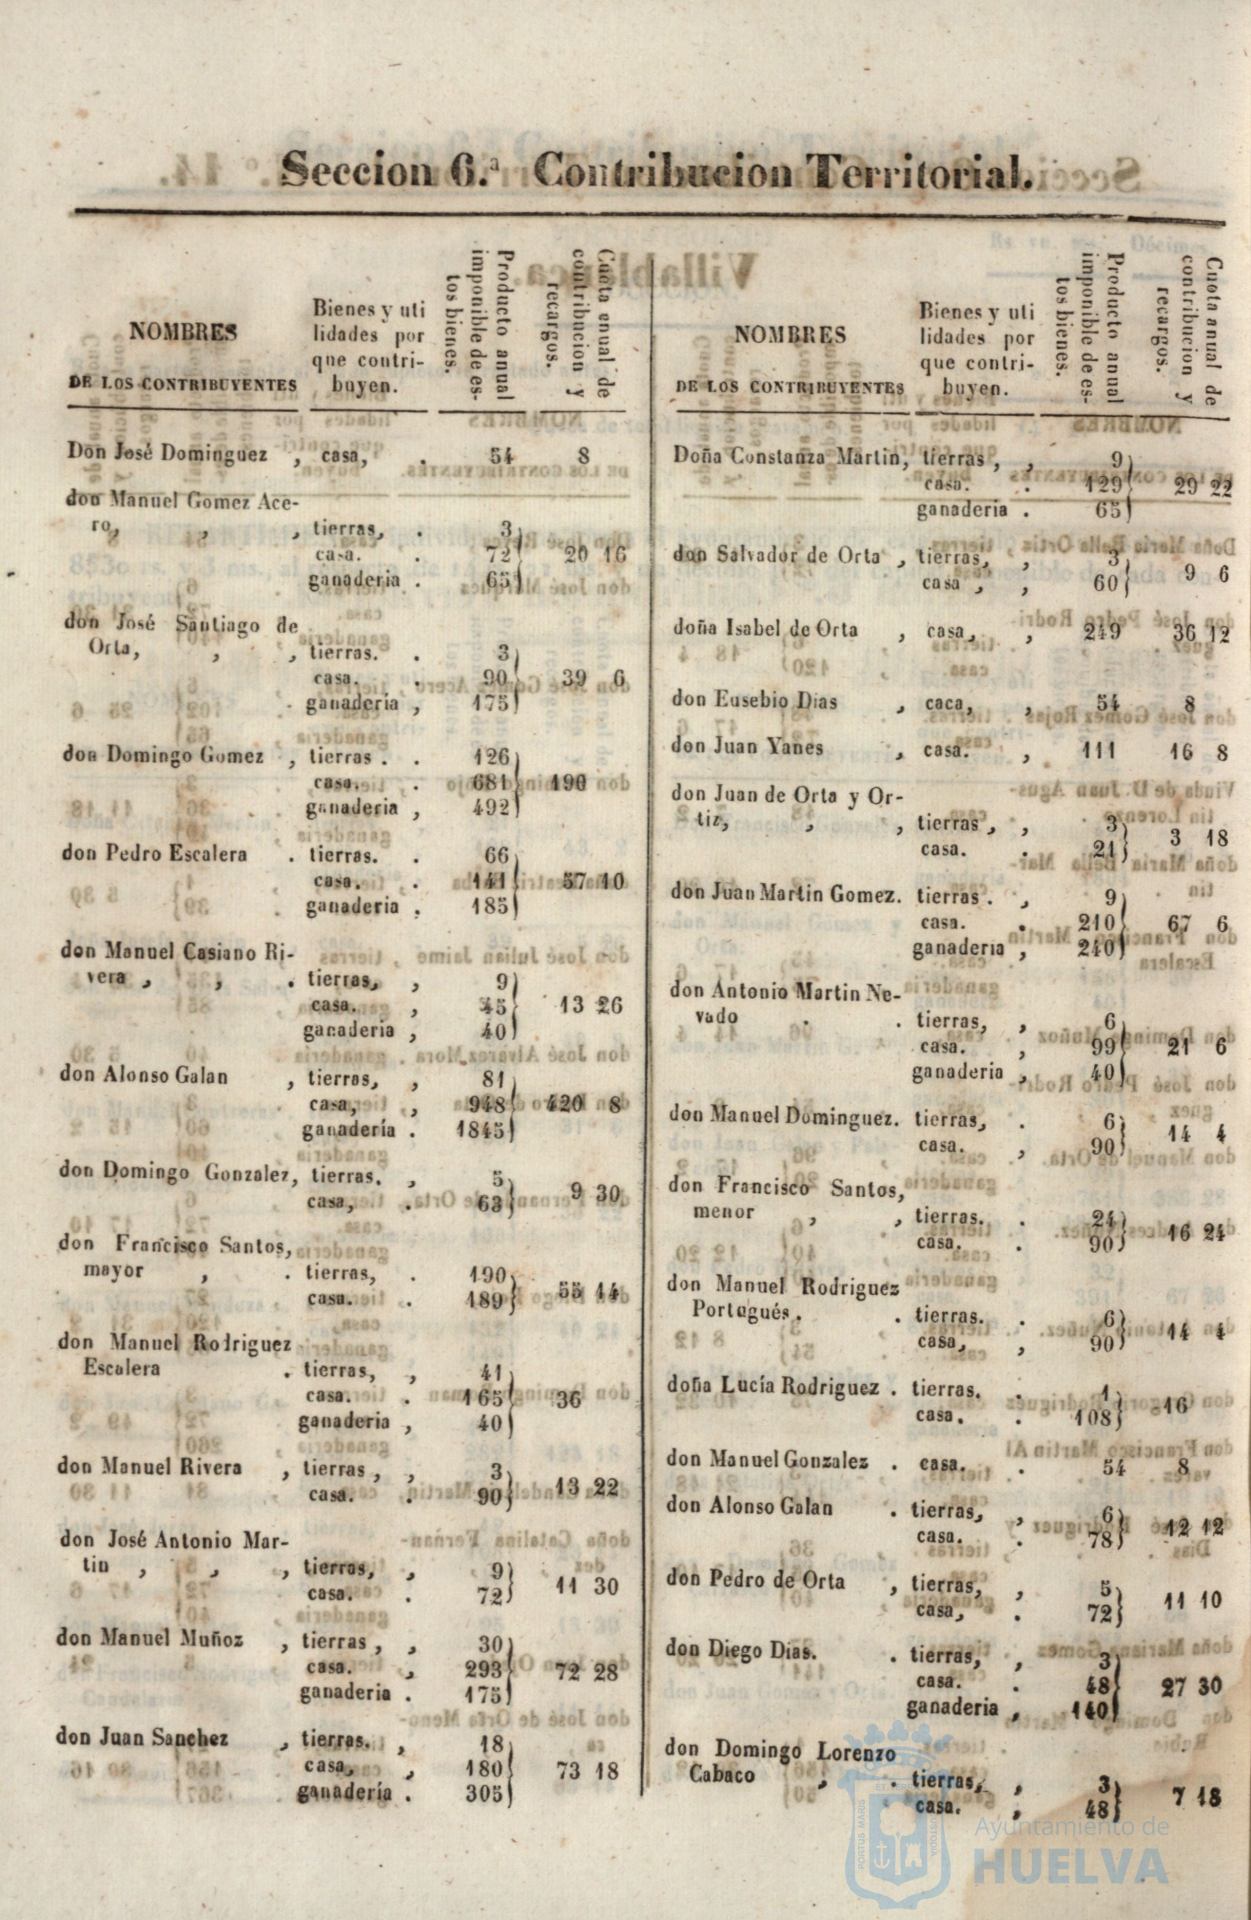 Seccion 6.ª Contribucion Territorial.
NOMBRES
DE LOS CONTRIBUYENTES
Bienes y uti
lidades por
que contri-
buyen.
Producto anual
imponible de es-
tos bienes.
Cuota enual de
contribucion y
recargos.
Don José Dominguez , casa, . 54 8
don Manuel Gomez Ace-
ro, , , tierras, . 3
casa. . 72 20 16
ganaderia . 65
don José Santiago de
Orta, , , tierras. . 3
casa. . 90 39 6
ganaderia , 175
don Domingo Gomez , tierras . . 126
casa. . 681 190
ganaderia , 492
don Pedro Escalera . tierras. . 66
casa. . 141 57 10
ganaderia . 185
don Manuel Casiano Ri-
vera , , . tierras, , 9
casa. , 45 13 26
ganaderia , 40
don Alonso Galan , tierras, , 81
casa, , 948 420 8
ganadería . 1845
don Domingo Gonzalez, tierras. , 5
casa, . 63 9 30
don Francisco Santos,
mayor , . tierras, . 190
casa. . 189 55 14
don Manuel Rodriguez
Escalera . tierras, , 41
casa. . 165 36
ganaderia , 40
don Manuel Rivera , tierras , , 3
casa. . 90 13 22
don José Antonio Mar-
tin , , , tierras, , 9
casa. . 72 11 30
don Manuel Muñoz , tierras , , 30
casa. , 293 72 28
ganaderia . 175
don Juan Sanchez , tierras. , 18
casa, , 180 73 18
ganadería . 305
NOMBRES
DE LOS CONTRIBUYENTES
Bienes y uti
lidades por
que contri-
buyen.
Producto anual
imponible de es-
tos bienes.
Cuota anual de
contribucion y
recargos.
Doña Constanza Martin, tierras , , 9
casa. . 129 29 22
ganaderia . 65
don Salvador de Orta , tierras, , 3
casa , , 60 9 6
doña Isabel de Orta , casa, , 249 36 12
don Eusebio Dias , caca, , 54 8
don Juan Yanes , casa. , 111 16 8
don Juan de Orta y Or-
tiz, , , tierras , , 3
casa. . 21 3 18
don Juan Martin Gomez. tierras . , 9
casa. . 210 67 6
ganaderia , 240
don Antonio Martin Ne-
vado . . tierras, , 6
casa. , 99 21 6
ganaderia , 40
don Manuel Dominguez. tierras, . 6
casa. , 90 14 4
don Francisco Santos,
menor , , tierras. . 24
casa. . 90 16 24
don Manuel Rodriguez
Portugués . . tierras. . 6
casa, , 90 14 4
doña Lucía Rodriguez . tierras. . 1
casa. . 108 16
don Manuel Gonzalez . casa. . 54 8
don Alonso Galan . tierras, , 6
casa. . 78 12 12
don Pedro de Orta , tierras, , 5
casa, . 72 11 10
don Diego Dias. . tierras, , 3
casa. . 48 27 30
ganaderia , 140
don Domingo Lorenzo
Cabaco , . tierras, , 3
casa. , 48 7 18
Ayuntamiento de
HUELVA